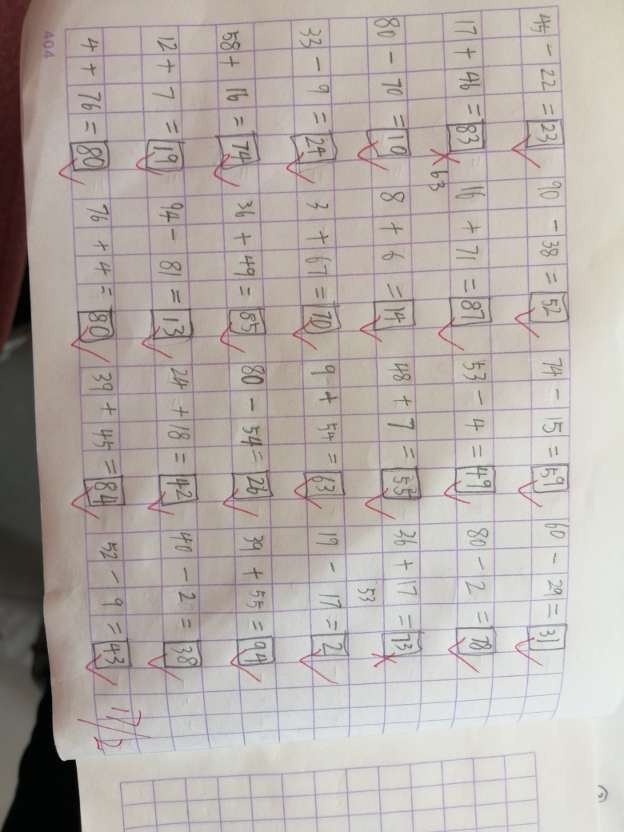 45 - 22 = 23 90 - 38 = 52 74 - 15 = 59 60 - 29 = 31
17 + 46 = 83 63 16 + 71 = 87 53 - 4 = 49 80 - 2 = 78
80 - 70 = 10 8 + 6 = 14 48 + 7 = 55 36 + 17 = 73 53
33 - 9 = 24 3 + 67 = 70 9 + 54 = 63 19 - 17 = 2
58 + 16 = 74 36 + 49 = 85 80 - 54 = 26 39 + 55 = 94
12 + 7 = 19 94 - 81 = 13 24 + 18 = 42 40 - 2 = 38
4 + 76 = 80 76 + 4 = 80 39 + 45 = 84 52 - 9 = 43
404